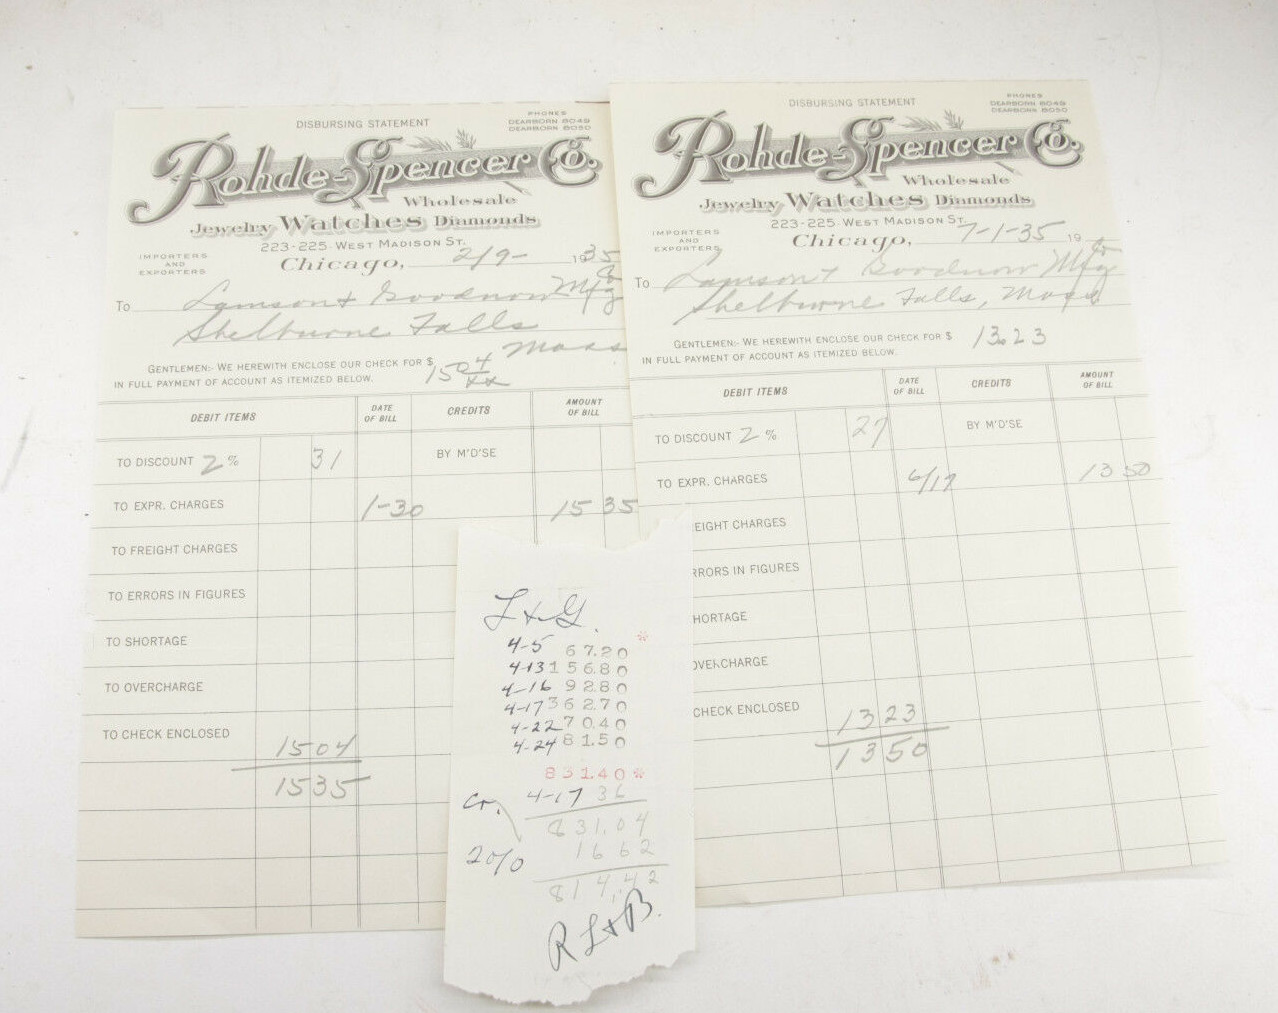 DISBURSING STATEMENT
PHONES
DEARBORN 8049
DEARBORN 8050
Rohde-Spencer Co.
Wholesale
Jewelry Watches Diamonds
223-225 WEST MADISON ST.
IMPORTERS
AND
EXPORTERS
Chicago, 2/9- 1935
To Lamson & Goodnow Mfg Co
Shelburne Falls
Mass
GENTLEMEN:- WE HEREWITH ENCLOSE OUR CHECK FOR $ 1504/xx
IN FULL PAYMENT OF ACCOUNT AS ITEMIZED BELOW.
DEBIT ITEMS DATE OF BILL CREDITS AMOUNT OF BILL
TO DISCOUNT 2 % 31 BY M'D'SE
TO EXPR. CHARGES 1-30 15 35
TO FREIGHT CHARGES
TO ERRORS IN FIGURES
TO SHORTAGE
TO OVERCHARGE
TO CHECK ENCLOSED 1504
1535
DISBURSING STATEMENT
PHONES
DEARBORN 8049
DEARBORN 8050
Rohde-Spencer Co.
Wholesale
Jewelry Watches Diamonds
223-225 WEST MADISON ST.
IMPORTERS
AND
EXPORTERS
Chicago, 7-1-35 19
To Lamson & Goodnow Mfg Co
Shelburne Falls, Mass
GENTLEMEN:- WE HEREWITH ENCLOSE OUR CHECK FOR $ 13.23
IN FULL PAYMENT OF ACCOUNT AS ITEMIZED BELOW.
DEBIT ITEMS DATE OF BILL CREDITS AMOUNT OF BILL
TO DISCOUNT 2 % 27 BY M'D'SE
TO EXPR. CHARGES 6/17 13 50
EIGHT CHARGES
RRORS IN FIGURES
HORTAGE
OVERCHARGE
CHECK ENCLOSED 1323
1350
L & G.
*
4-5 67.20
4-13 156.80
4-16 92.80
4-17 362.70
4-22 70.40
4-24 81.50
831.40 *
Cr. 4-17 36
831.04
2% 1662
814.42
R L & B.